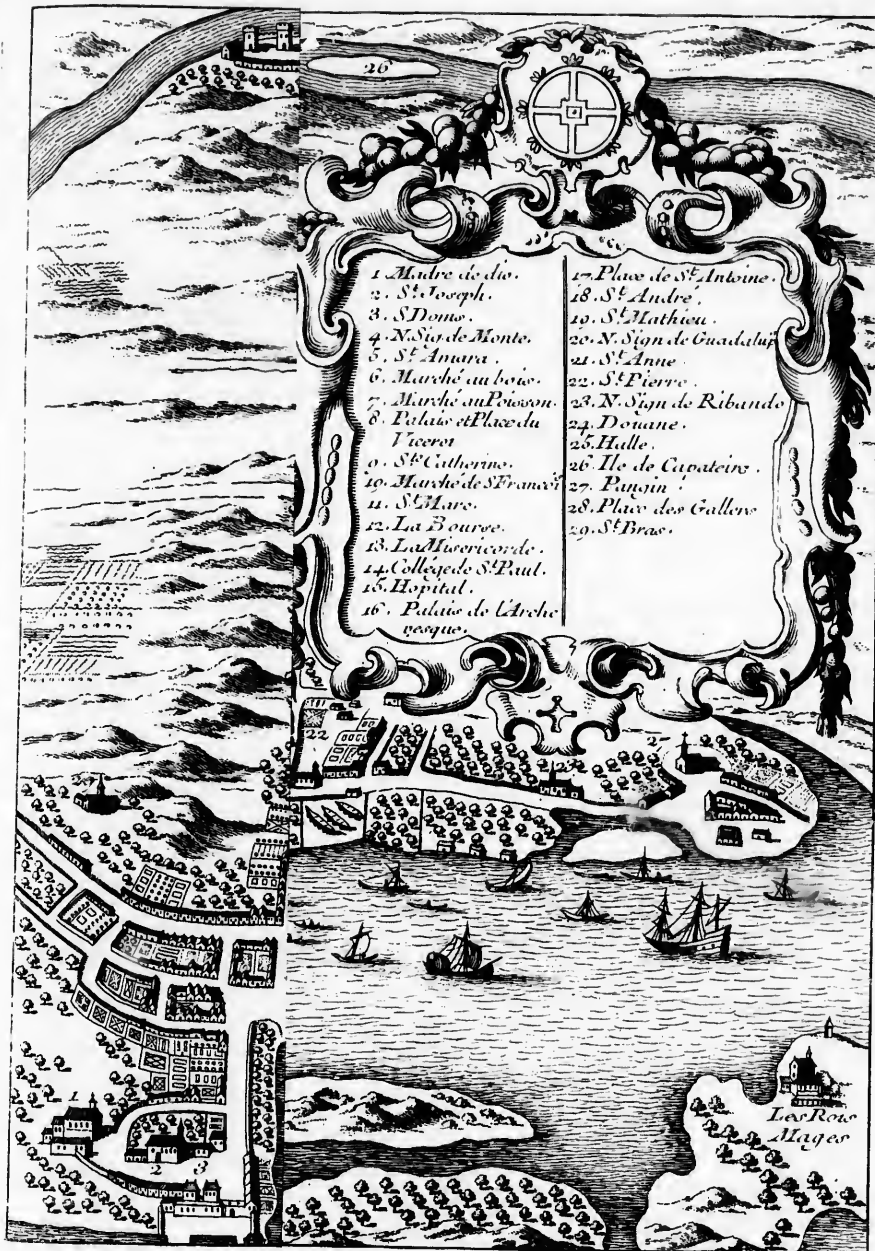 26
1. Madre de dio.
2. St. Joseph.
3. S. Doms.
4. N. Sig. de Monte.
5. St. Amara.
6. Marché au bois.
7. Marché au Poisson.
8. Palais et Place du
Viceroi
9. Ste Catherine.
10. Marché de S Francois
11. St. Marc.
12. La Bourse.
13. La Misericorde.
14. Collége de St. Paul.
15. Hopital.
16. Palais de L'Arche
vesque.
17. Place de St. Antoine.
18. St. André.
19. St. Mathieu.
20. N. Sign de Guadalup
21. St. Anne
22. St. Pierre.
23. N. Sign de Ribando
24. Douane.
25. Halle.
26. Ile de Capateiro.
27. Pangin.
28. Place des Gallers
29. St. Bras.
22
23
1
2
3
Les Rois
Mages